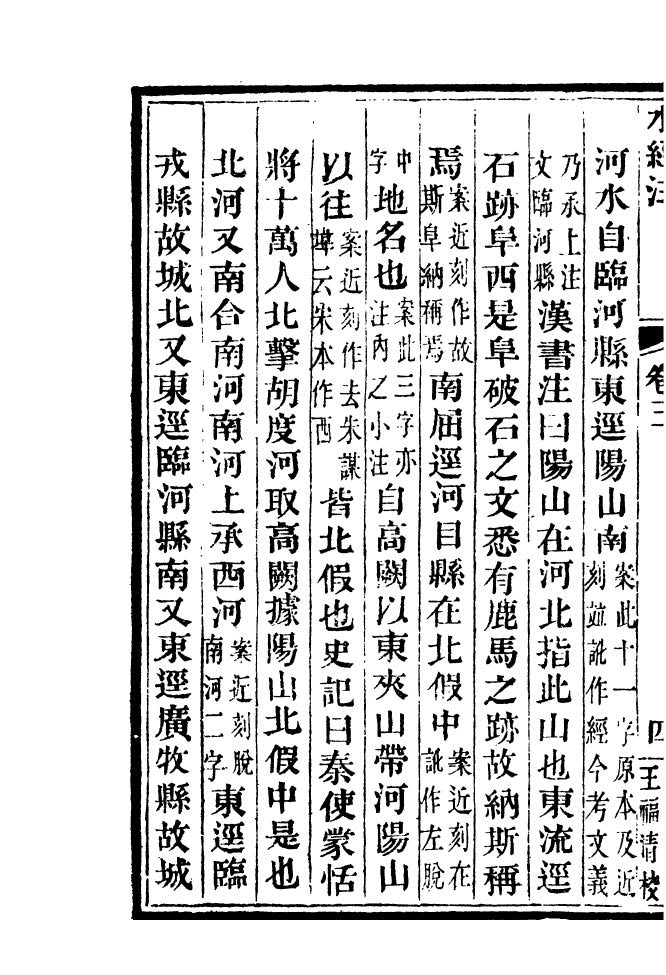 水經注 卷三 四 王福清校
河水自臨河縣東逕陽山南案此十一字原本及近刻竝訛作經今考文義
乃承上注文臨河縣漢書注曰陽山在河北指此山也東流逕
石跡阜西是阜破石之文悉有鹿馬之跡故納斯稱
焉案近刻作故斯阜納稱焉南屈逕河目縣在北假中案近刻在訛作左脫
中字地名也案此三字亦注內之小注自高闕以東夾山帶河陽山
以往案近刻作去朱謀㙔云宋本作西皆北假也史記曰秦使蒙恬
將十萬人北擊胡度河取高闕據陽山北假中是也
北河又南合南河南河上承西河案近刻脫南河二字東逕臨
戎縣故城北又東逕臨河縣南又東逕廣牧縣故城